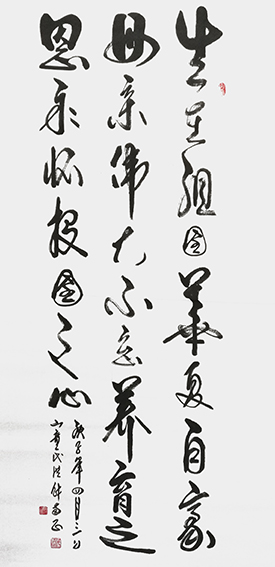 生在祖国華夏自豪
母亲伟大不忘养育之
恩永怀报国之心
庚子年四月三日